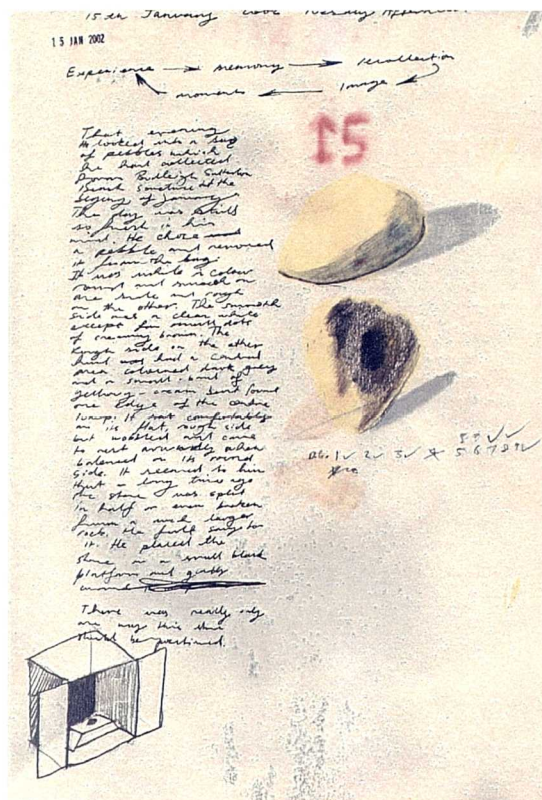 15th January 2002 Tuesday Afternoon
15 JAN 2002
Experience → memory → Recollection
moments ← Image
15
That evening
He looked into a bag
of pebbles which
he had collected
from Budleigh Salterton
Beach sometime at the
begining of January
The day was still
so fresh in his
mind. He chose
a pebble and removed
it from the bag.
It was white in colour
round and smooth on
one side and rough
on the other. The smooth
side was a clear white
except for small dots
of creamy brown. The
rough side on the other
hand had a central
area coloured dark grey
and a small band of
yellowy-cream
one edge of the
It sat comfortably
on its flat, rough side
but wobbled and came
to rest when
balanced on its round
side. It seemed to him
that a long time ago
the stone was split
in half or even broken
from a much larger
rock.
it. He placed the
stone in a small black
platform and
There was really only
one way this
should be positioned.
1 2 3
5 6 7 8 9